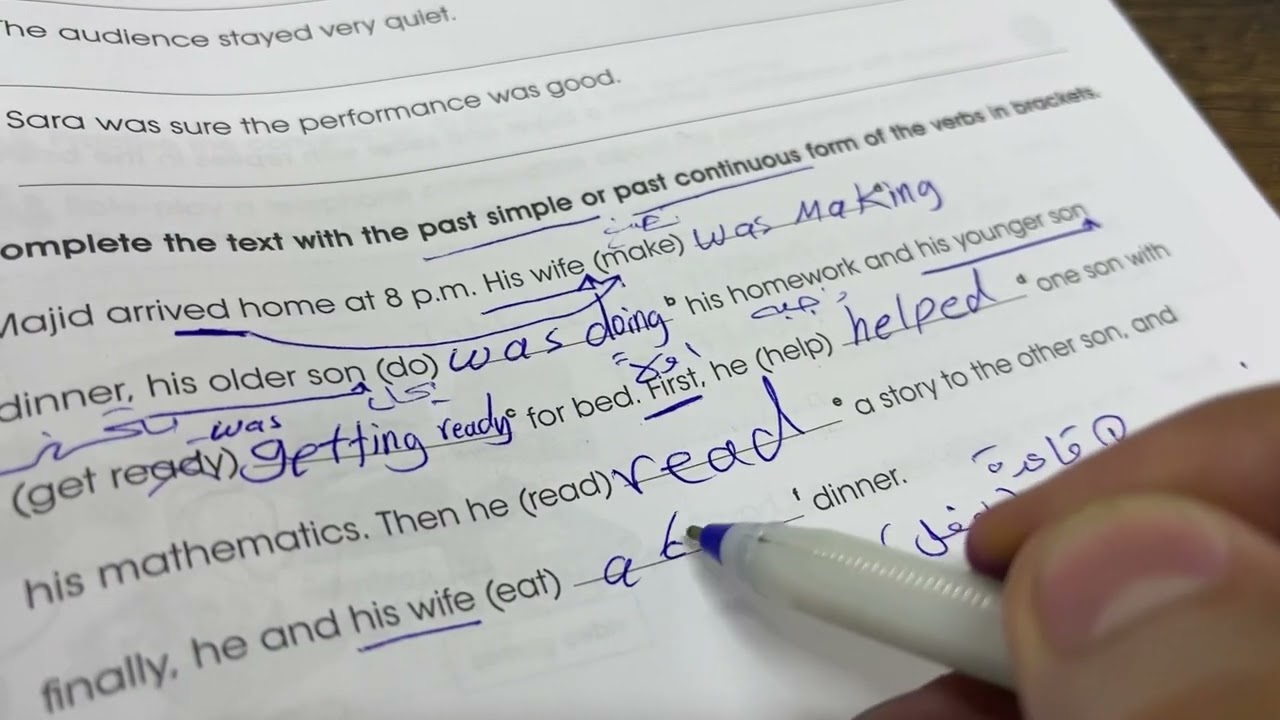 The audience stayed very quiet.
Sara was sure the performance was good.
omplete the text with the past simple or past continuous form of the verbs in brackets.
Majid arrived home at 8 p.m. His wife (make) was making a
dinner, his older son (do) was doing b his homework and his younger son
was
(get ready) getting ready c for bed. First, he (help) helped d one son with
his mathematics. Then he (read) read e a story to the other son, and
finally, he and his wife (eat) at f dinner.
قاعدة